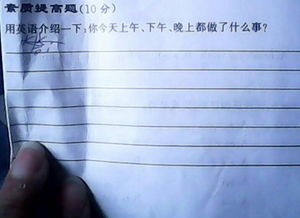 素质提高题(10分)
用英语介绍一下:你今天上午、下午、晚上都做了什么事?